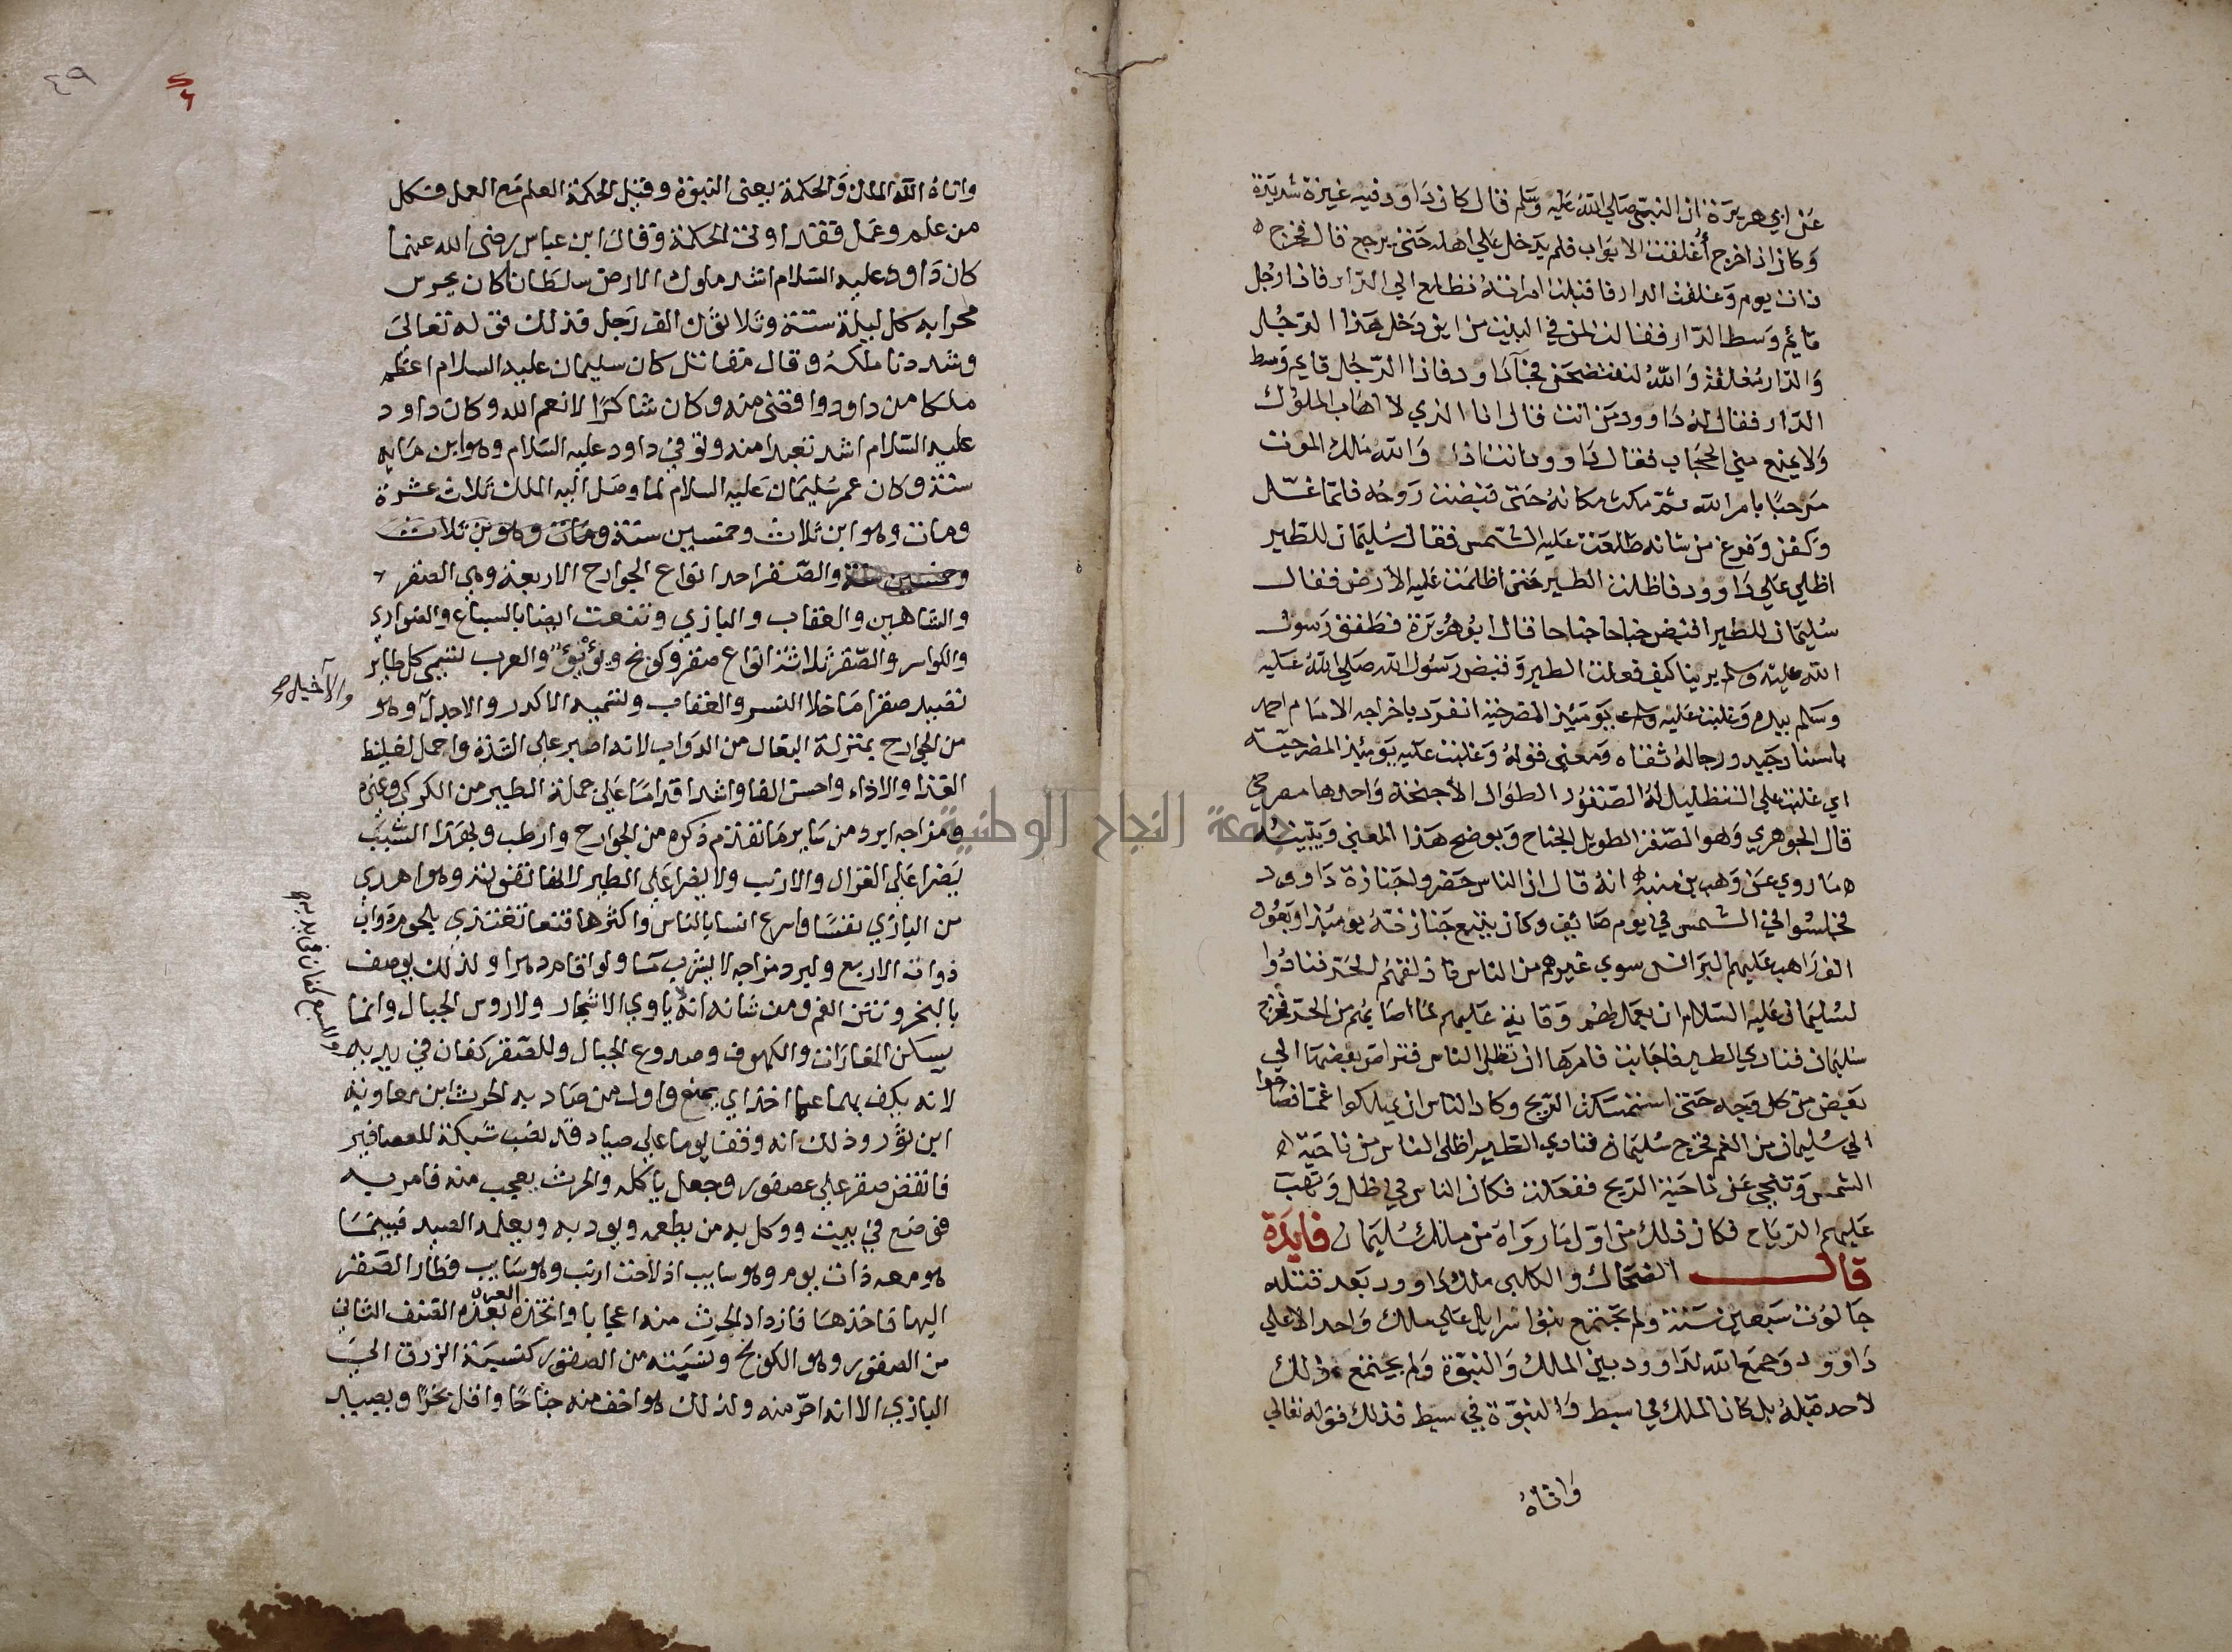 عن ابي هريرة ان النبي صلي الله عليه وسلم قال كان داوود فيه غيرة شديدة
وكان اذا خرج أغلقت الابواب فلم يدخل علي اهله حتى يرجع قال فخرج
ذات يوم وغلقت الدار فاقبلت امراته تطلع الي الدار فاذا رجل
قايم وسط الدار فقالت لمن في البيت من اين دخل هذا الرجل
والدار مغلقة والله لنفتضحن فجآ داود فاذا الرجل قايم وسط
الدار فقال له داوود من انت قال انا الذي لا اهاب الملوك
ولا يمنع مني الحجاب فقال داوود انت اذا والله ملك الموت
مرحبًا بامر الله ثم مكث مكانه حتى قبضت روحه فلما غسل
وكفن وفرغ من شانه طلعت عليه الشمس فقال سليمان للطير
اظلي علي داوود فاظلت الطير حتى اظلمت عليه الأرض فقال
سليمان للطير اقبض جناحا جناحا قال ابو هريرة فطفق رسول
الله عليه وسلم يرينا كيف فعلت الطير وقبض رسول الله صلي الله عليه
وسلم بيده وغلبت عليه يوميذ المضرحية انفرد باخراجه الامام احمد
باسناد جيد ورجاله ثقاه ومعنى قوله وغلبت عليه يوميذ المضرحية
اي غلبت على التظليل له الصقور الطوال الأجنحة واحدها مضرحي
قال الجوهري وهو الصقر الطويل الجناح ويوضح هذا المعني ويبينه
ما روي عن وهب بن منبه انه قال ان الناس حضروا جنازة داوود
فجلسوا في الشمس في يوم صائف وكان يتبع جنازته يوميذ اربعون
الف راهب عليهم البرانس سوي غيرهم من الناس فاذلقهم الحر فنادوا
لسليمان عليه السلام ان يعمل لهم وقاية عليهم لما اصابهم من الحر فخرج
سليمان فنادي الطير فاجابت فامرها ان تظل الناس فتراص بعضها الي
بعض من كل وجه حتى استمسكت الريح وكاد الناس ان يهلكوا غما فصاحوا
الي سليمان من الغم فخرج سليمان فنادي الطير اظلى الناس من ناحية
الشمس وتنحى عن ناحية الريح ففعلت فكان الناس في ظل وتهب
عليهم الرياح فكان ذلك من اول ما راواه من ملك سليمان فايدة
قال الضحاك والكلبي ملك داوود بعد قتله
جالوت سبعين سنة ولم يجتمع بنوا سرايل على ملك واحد الا علي
داوود وجمع الله لداوود بين الملك والنبوة ولم يجتمع ذلك
لأحد قبله بل كان الملك في سبط والنبوة في سبط فذلك قوله تعالي
واتاه
٤٩
واتاه الله الملك والحكمة يعنى النبوة وقيل الحكمة العلم مع العمل فكل
من علم وعمل فقد اوتي الحكمة وقال ابن عباس رضى الله عنهما
كان داود عليه السلام اشد ملوك الارض سلطانا كان يحرس
محرابه كل ليلة ستة وثلاثون الف رجل فذلك قوله تعالى
وشددنا ملكه وقال مقاتل كان سليمان عليه السلام اعظم
ملكا من داود واقضى منه وكان شاكرًا لانعم الله وكان داود
عليه السلام اشد تعبدا منه وتوفي داود عليه السلام وهو ابن مايه
سنة وكان عمر سليمان عليه السلام لما وصل اليه الملك ثلاث عشرة
ومات وهو ابن ثلاث وخمسين سنة ومات وهو بن ثلاث
وخمسين سنة والصقر احد انواع الجوارح الاربعة وهي الصقر
والشاهين والعقاب والبازي وتنعت ايضا بالسباع والضواري
والكواسر والصقر ثلاثة انواع صقر وكونج ويؤيؤ والعرب تسمي كل طاير
والأخيل صح
نقيد صقرا ما خلا النسر والعقاب وتسميه الاكدر والاجدل وهو
من الجوارح بمنزلة البغال من الدواب لانه اصبر على الشدة واحمل لغليظ
الغذا والاذاء واحسن الفا واشد اقداما على جملة الطير من الكركي وغيره
ومزاجه ابرد من ساير ما تقدم ذكره من الجوارح وارطب وبهذا السبب
يضرا على الغزال والارنب ولا يضرا على الطير لانها تفوته وهو اهدي
من البازي نفسا واسرع انسا بالناس واكثرها قنعا تغتذي بلحوم
ذوات الاربع ولبرد مزاجه لا يشرب مآ ولو اقام دهرا ولذلك يوصف
بالبخر ونتن الفم ومن شانه انه لا ياوي الاشجار ولا روس الجبال وانما
يسكن المغارات والكهوف وصدوع الجبال وللصقر كفان في يديه
لانه يكف بهما عما اخذ اي يمنع واول من صاد به الحرث ابن معاوية
ابن ثور وذلك انه وقف يوما على صياد قد نصب شبكة للعصافير
فانقض صقر على عصفور وجعل ياكله والحرث يعجب منه فامر به
فوضع في بيت ووكل به من يطعمه ويودبه ويعلمه الصيد فبينما
هو معه ذات يوم وهو سايب اذ لاحت ارنب وهو سايب فطار الصقر
اليها فاخذها فازداد الحرث منه اعجابا واتخذه العرب بعده الصنف الثاني
من الصقور وهو الكونج ونسبته من الصقور كنسبة الزرق الى
البازي الا انه احر منه ولذلك هو اخف منه جناحا واقل بخرًا ويصيد